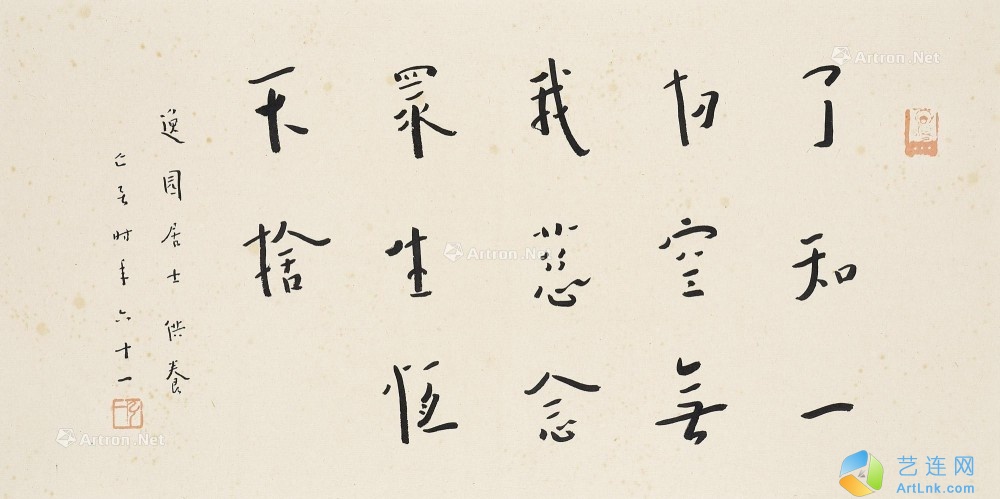 了知一
切空無
我慈念
眾生恆
不捨
逸園居士供養
亡言时年六十一
Artron.Net
Artron.Net
Artron.Net
艺连网
ArtLnk.com